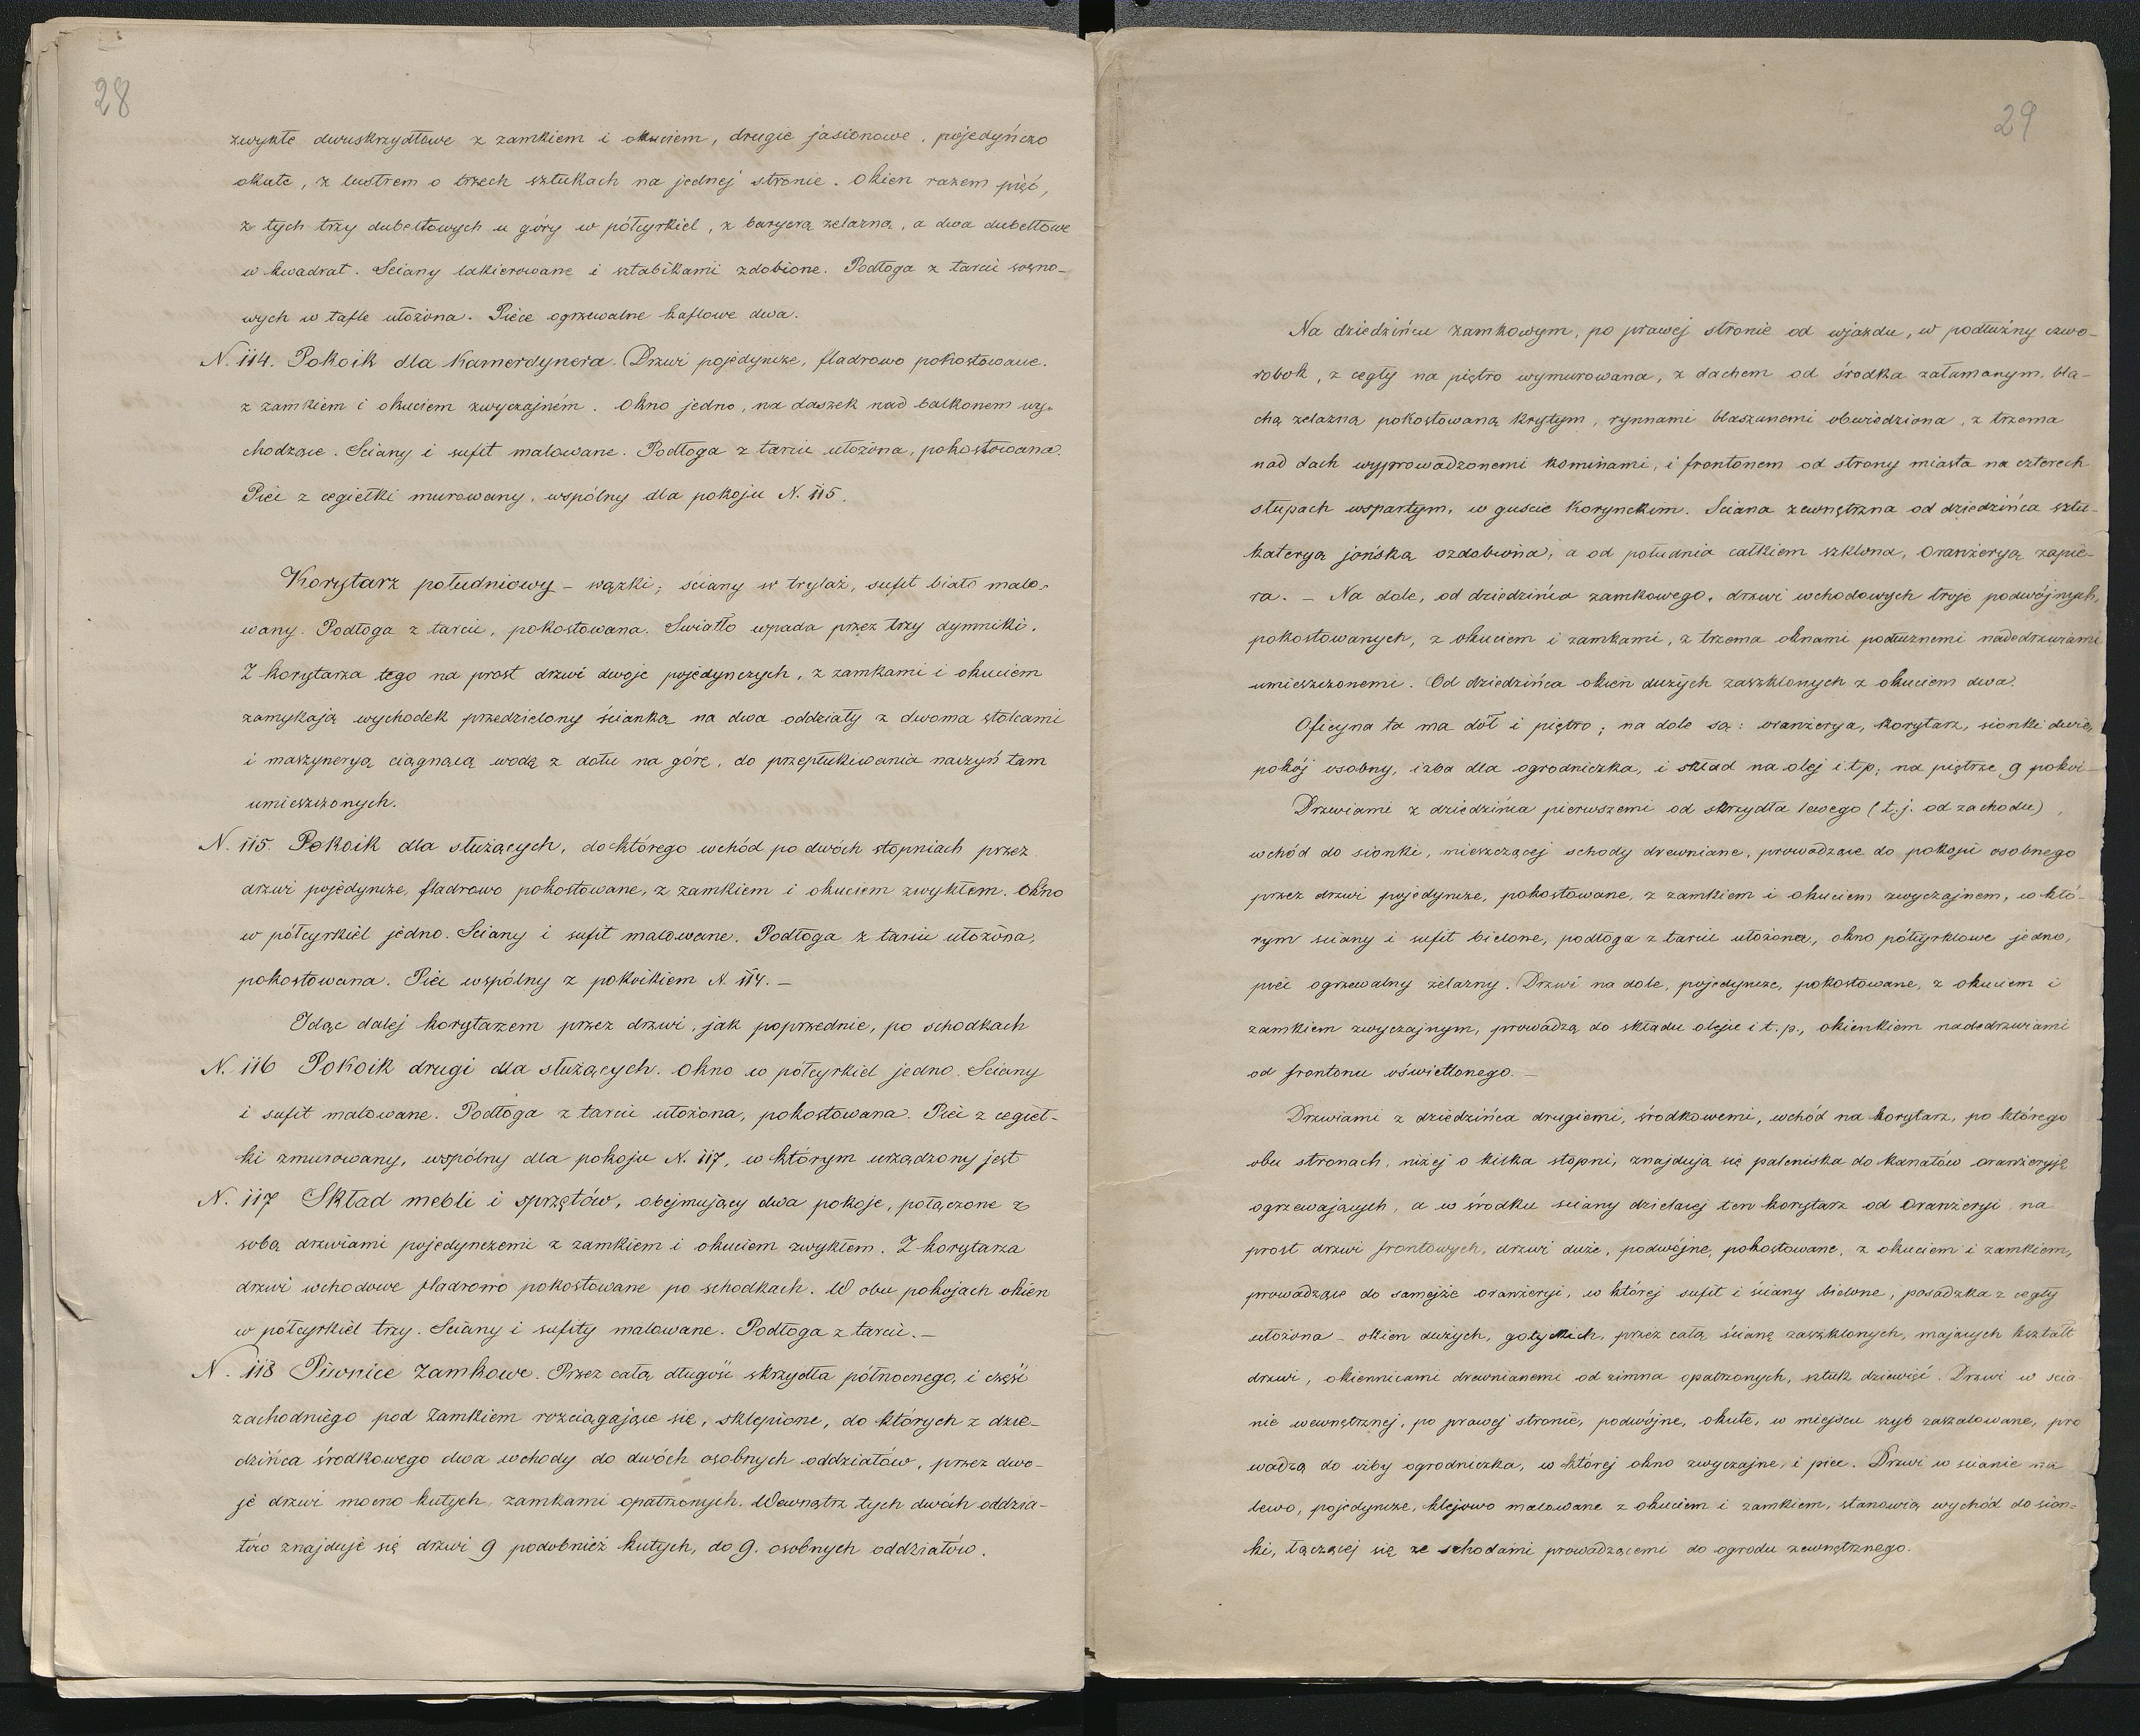 28
zwykłe dwuskrzydłowe z zamkiem i okuciem, drugie jasionowe, pojedyńczo
okute, z lustrem o trzech sztukach na jednej stronie. Okien razem pięć,
z tych trzy dubeltowych u góry w półcyrkiel, z baryerą żelazną, a dwa dubeltowe
w kwadrat. Ściany lakierowane i sztabikami zdobione. Podłoga z tarcic sosno-
wych w tafle ułożona. Piece ogrzewalne kaflowe dwa.
N. 114. Pokoik dla Kamerdynera. Drzwi pojedyncze, fladrowo pokostowane.
z zamkiem i okuciem zwyczajném. Okno jedno, na daszek nad balkonem wy-
chodzące. Ściany i sufit malowane. Podłoga z tarcic ułożona, pokostowana.
Piec z cegiełki murowany, wspólny dla pokoju N. 115.
Korytarz południowy – wązki; ściany w trylaż, sufit biało malo-
wany. Podłoga z tarcic, pokostowana. Światło wpada przez trzy dymniki.
Z korytarza tego na prost drzwi dwoje pojedynczych, z zamkami i okuciem
zamykają wychodek przedzielony ścianką na dwa oddziały z dwoma stolcami
i maszyneryą ciągnącą wodę z dołu na górę, do przepłukiwania naczyń tam
umieszczonych.
N. 115. Pokoik dla służących, do którego wchód po dwóch stopniach przez
drzwi pojedyncze, fladrowo pokostowane, z zamkiem i okuciem zwykłem. Okno
w półcyrkiel jedno. Ściany i sufit malowane. Podłoga z tarcic ułożona,
pokostowana. Piec wspólny z pokoikiem N. 114. –
Idąc dalej korytarzem przez drzwi, jak poprzednie, po schodkach
N. 116 Pokoik drugi dla służących. Okno w półcyrkiel jedno. Ściany
i sufit malowane. Podłoga z tarcic ułożona, pokostowana. Piec z cegieł-
ki zmurowany, wspólny dla pokoju N. 117, w którym urządzony jest
N. 117 Skład mebli i sprzętów, obejmujący dwa pokoje, połączone z
sobą drzwiami pojedynczemi z zamkiem i okuciem zwykłem. Z korytarza
drzwi wchodowe fladrowo pokostowane po schodkach. W obu pokojach okien
w półcyrkiel trzy. Ściany i sufity malowane. Podłoga z tarcic. –
N. 118 Piwnice Zamkowe. Przez całą długość skrzydła północnego, i część
zachodniego pod Zamkiem rozciągające się, sklepione, do których z dzie-
dzińca środkowego dwa wchody do dwóch osobnych oddziałów, przez dwo-
je drzwi mocno kutych, zamkami opatrzonych. Wewnątrz tych dwóch oddzia-
łów znajduje się drzwi 9 podobnież kutych, do 9. osobnych oddziałów.
29
Na dziedzińcu zamkowym, po prawej stronie od wjazdu, w podłużny czwo-
robok, z cegły na piętro wymurowana, z dachem od środka załamanym, bla-
chą żelazną pokostowaną krytym, rynnami blaszanemi obwiedziona, z trzema
nad dach wyprowadzonemi kominami, i frontonem od strony miasta na czterech
słupach wspartym, w guście Korynckim. Ściana zewnętrzna od dziedzińca sztu-
kateryą jońską ozdobiona, a od południa całkiem szklona, Oranżeryą zapie-
ra. – Na dole, od dziedzińca zamkowego, drzwi wchodowych troje podwójnych,
pokostowanych, z okuciem i zamkami, z trzema oknami podłużnemi nadedrzwiami
umieszczonemi. Od dziedzińca okien dużych zaszklonych z okuciem dwa.
Oficyna ta ma dół i piętro; na dole są: oranżerya, korytarz, sionki dwie,
pokój osobny, izba dla ogrodniczka, i skład na olej i.t.p; na piętrze 9 pokoi –
Drzwiami z dziedzińca pierwszemi od skrzydła lewego (t.j. od zachodu)
wchód do sionki, mieszczącej schody drewniane, prowadzące do pokoju osobnego
przez drzwi pojedyncze, pokostowane, z zamkiem i okuciem zwyczajnem, w któ-
rym ściany i sufit bielone, podłoga z tarcic ułożona, okno półcyrklowe jedno,
piec ogrzewalny żelazny. Drzwi na dole, pojedyncze, pokostowane, z okuciem i
zamkiem zwyczajnym, prowadzą do składu oleju i t.p., okienkiem nadedrzwiami
od frontonu oświetlonego. –
Drzwiami z dziedzińca drugiemi, środkowemi, wchód na korytarz, po którego
obu stronach, niżej o kilka stopni, znajdują się paleniska do kanałów oranżeryję
ogrzewających, a w środku ściany dzielącej ten korytarz od Oranżeryi na
prost drzwi frontowych, drzwi duże, podwójne, pokostowane, z okuciem i zamkiem,
prowadzące do samejże oranżeryi, w której sufit i ściany bielone, posadzka z cegły
ułożona – okien dużych, gotyckich, przez całą ścianę zaszklonych, mających kształt
drzwi, okiennicami drewnianemi od zimna opatrzonych, sztuk dziewięć. Drzwi w ścia-
nie wewnętrznej, po prawej stronie, podwójne, okute, w miejscu szyb zaszalowane, pro
wadzą do izby ogrodniczka, w której okno zwyczajne, i piec. Drzwi w ścianie na
lewo, pojedyncze, klejowo malowane z okuciem i zamkiem, stanowią wychód do sion-
ki, łączącej się ze schodami prowadzącemi do ogrodu zewnętrznego.